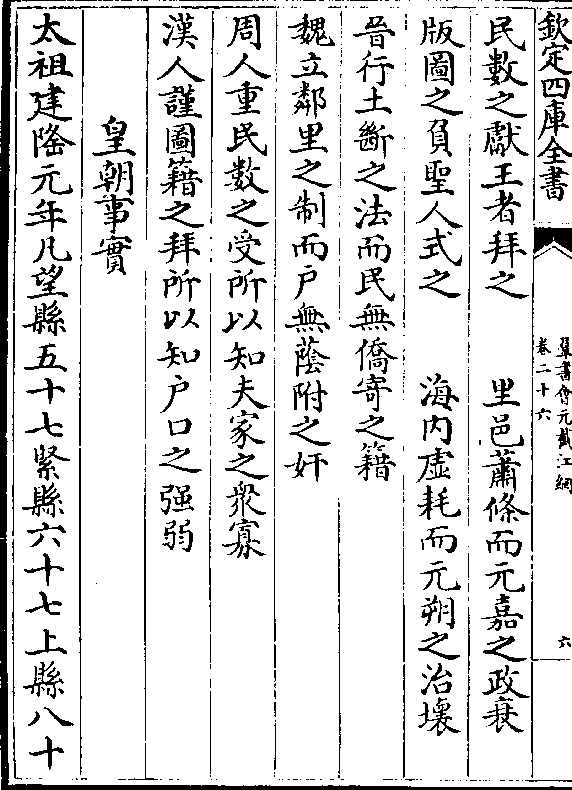 欽定四庫全書
羣書會元截江網
卷二十六
六
民數之獻王者拜之　里邑蕭條而元嘉之政衰
版圖之負聖人式之　海内虛耗而元朔之治壞
晉行土斷之法而民無僑寄之籍
魏立鄰里之制而户無蔭附之奸
周人重民數之受所以知夫家之衆寡
漢人謹圖籍之拜所以知户口之强弱
皇朝事實
太祖建隆元年凡望縣五十七緊縣六十七上縣八十